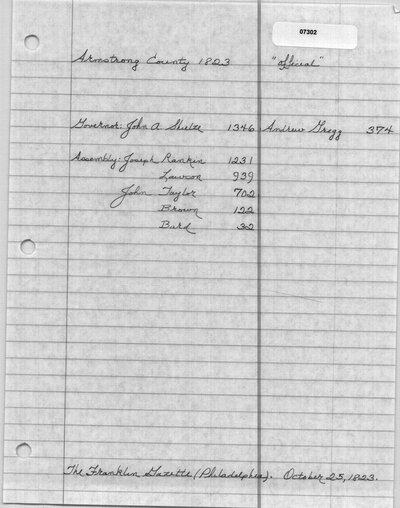 07302
Armstrong County 1823 "official"
Governor: John A Shulze 1346 Andrew Gregg 374
Assembly: Joseph Rankin 1231
Lawson 939
John Taylor 702
Brown 122
Burd 32
The Franklin Gazette (Philadelphia). October 25, 1823.